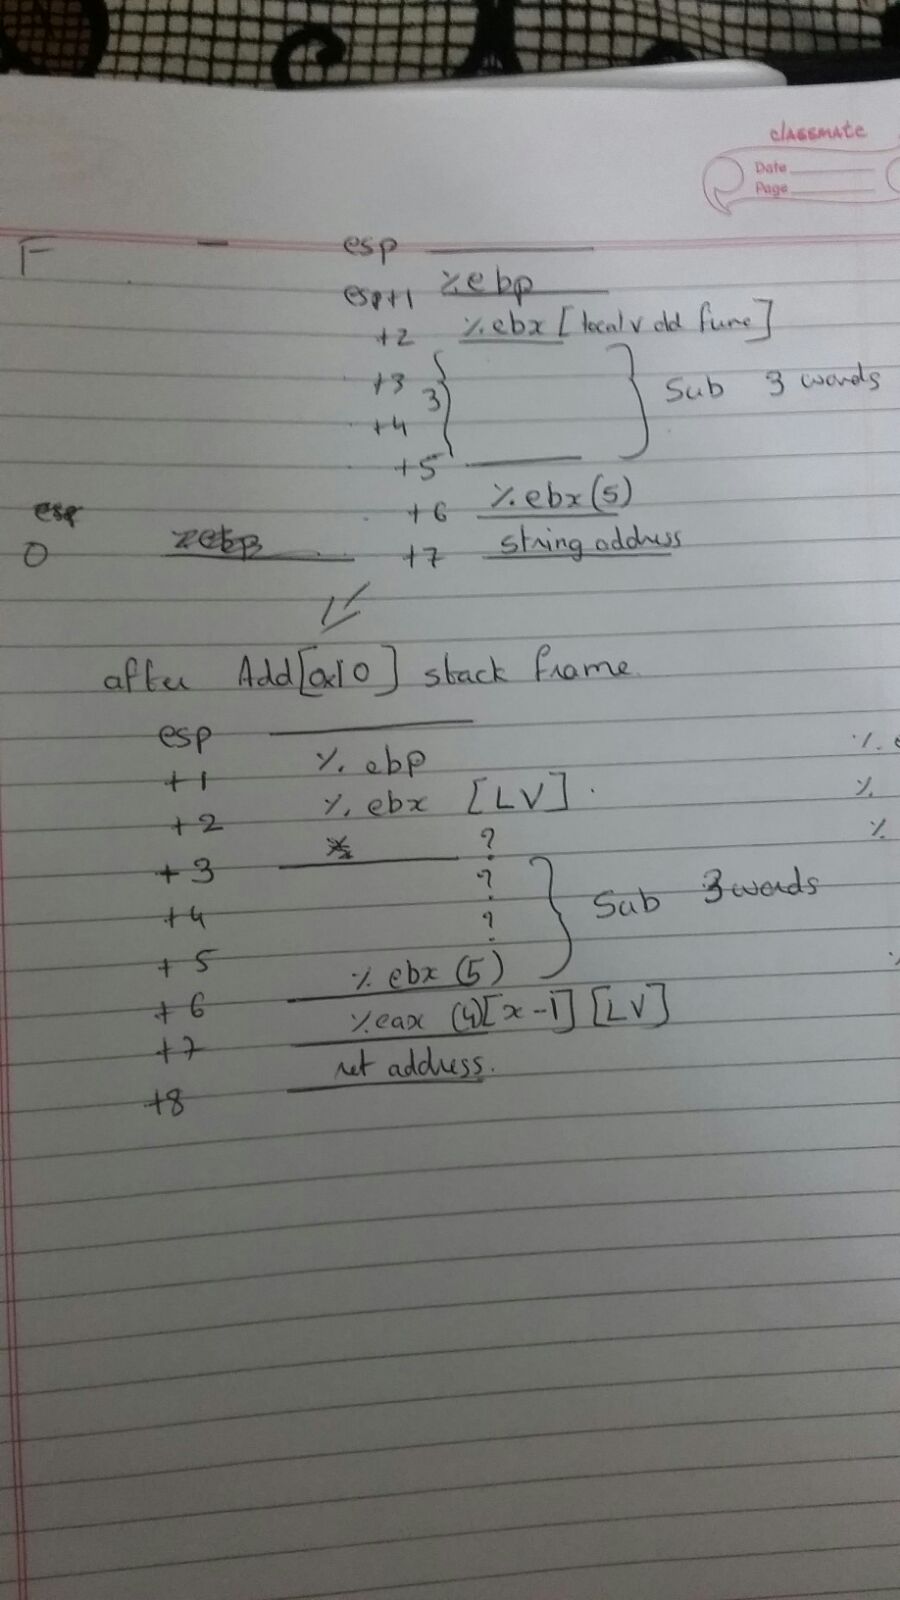 classmate
Date
Page
F
esp
esp+1 %ebp
+2 %ebx [local v old func]
+3
3
+4
Sub 3 words
+5
+6 %ebx(5)
esp
0 %ebp
+7 string address
after Add[0x10] stack frame
esp
+1 %ebp
+2 %ebx [LV]
+3 ?
+4 ?
Sub 3 words
+5 ?
+6 %ebx (5)
+7 %eax (4)[x-1] [LV]
+8 ret address.
%
%
%